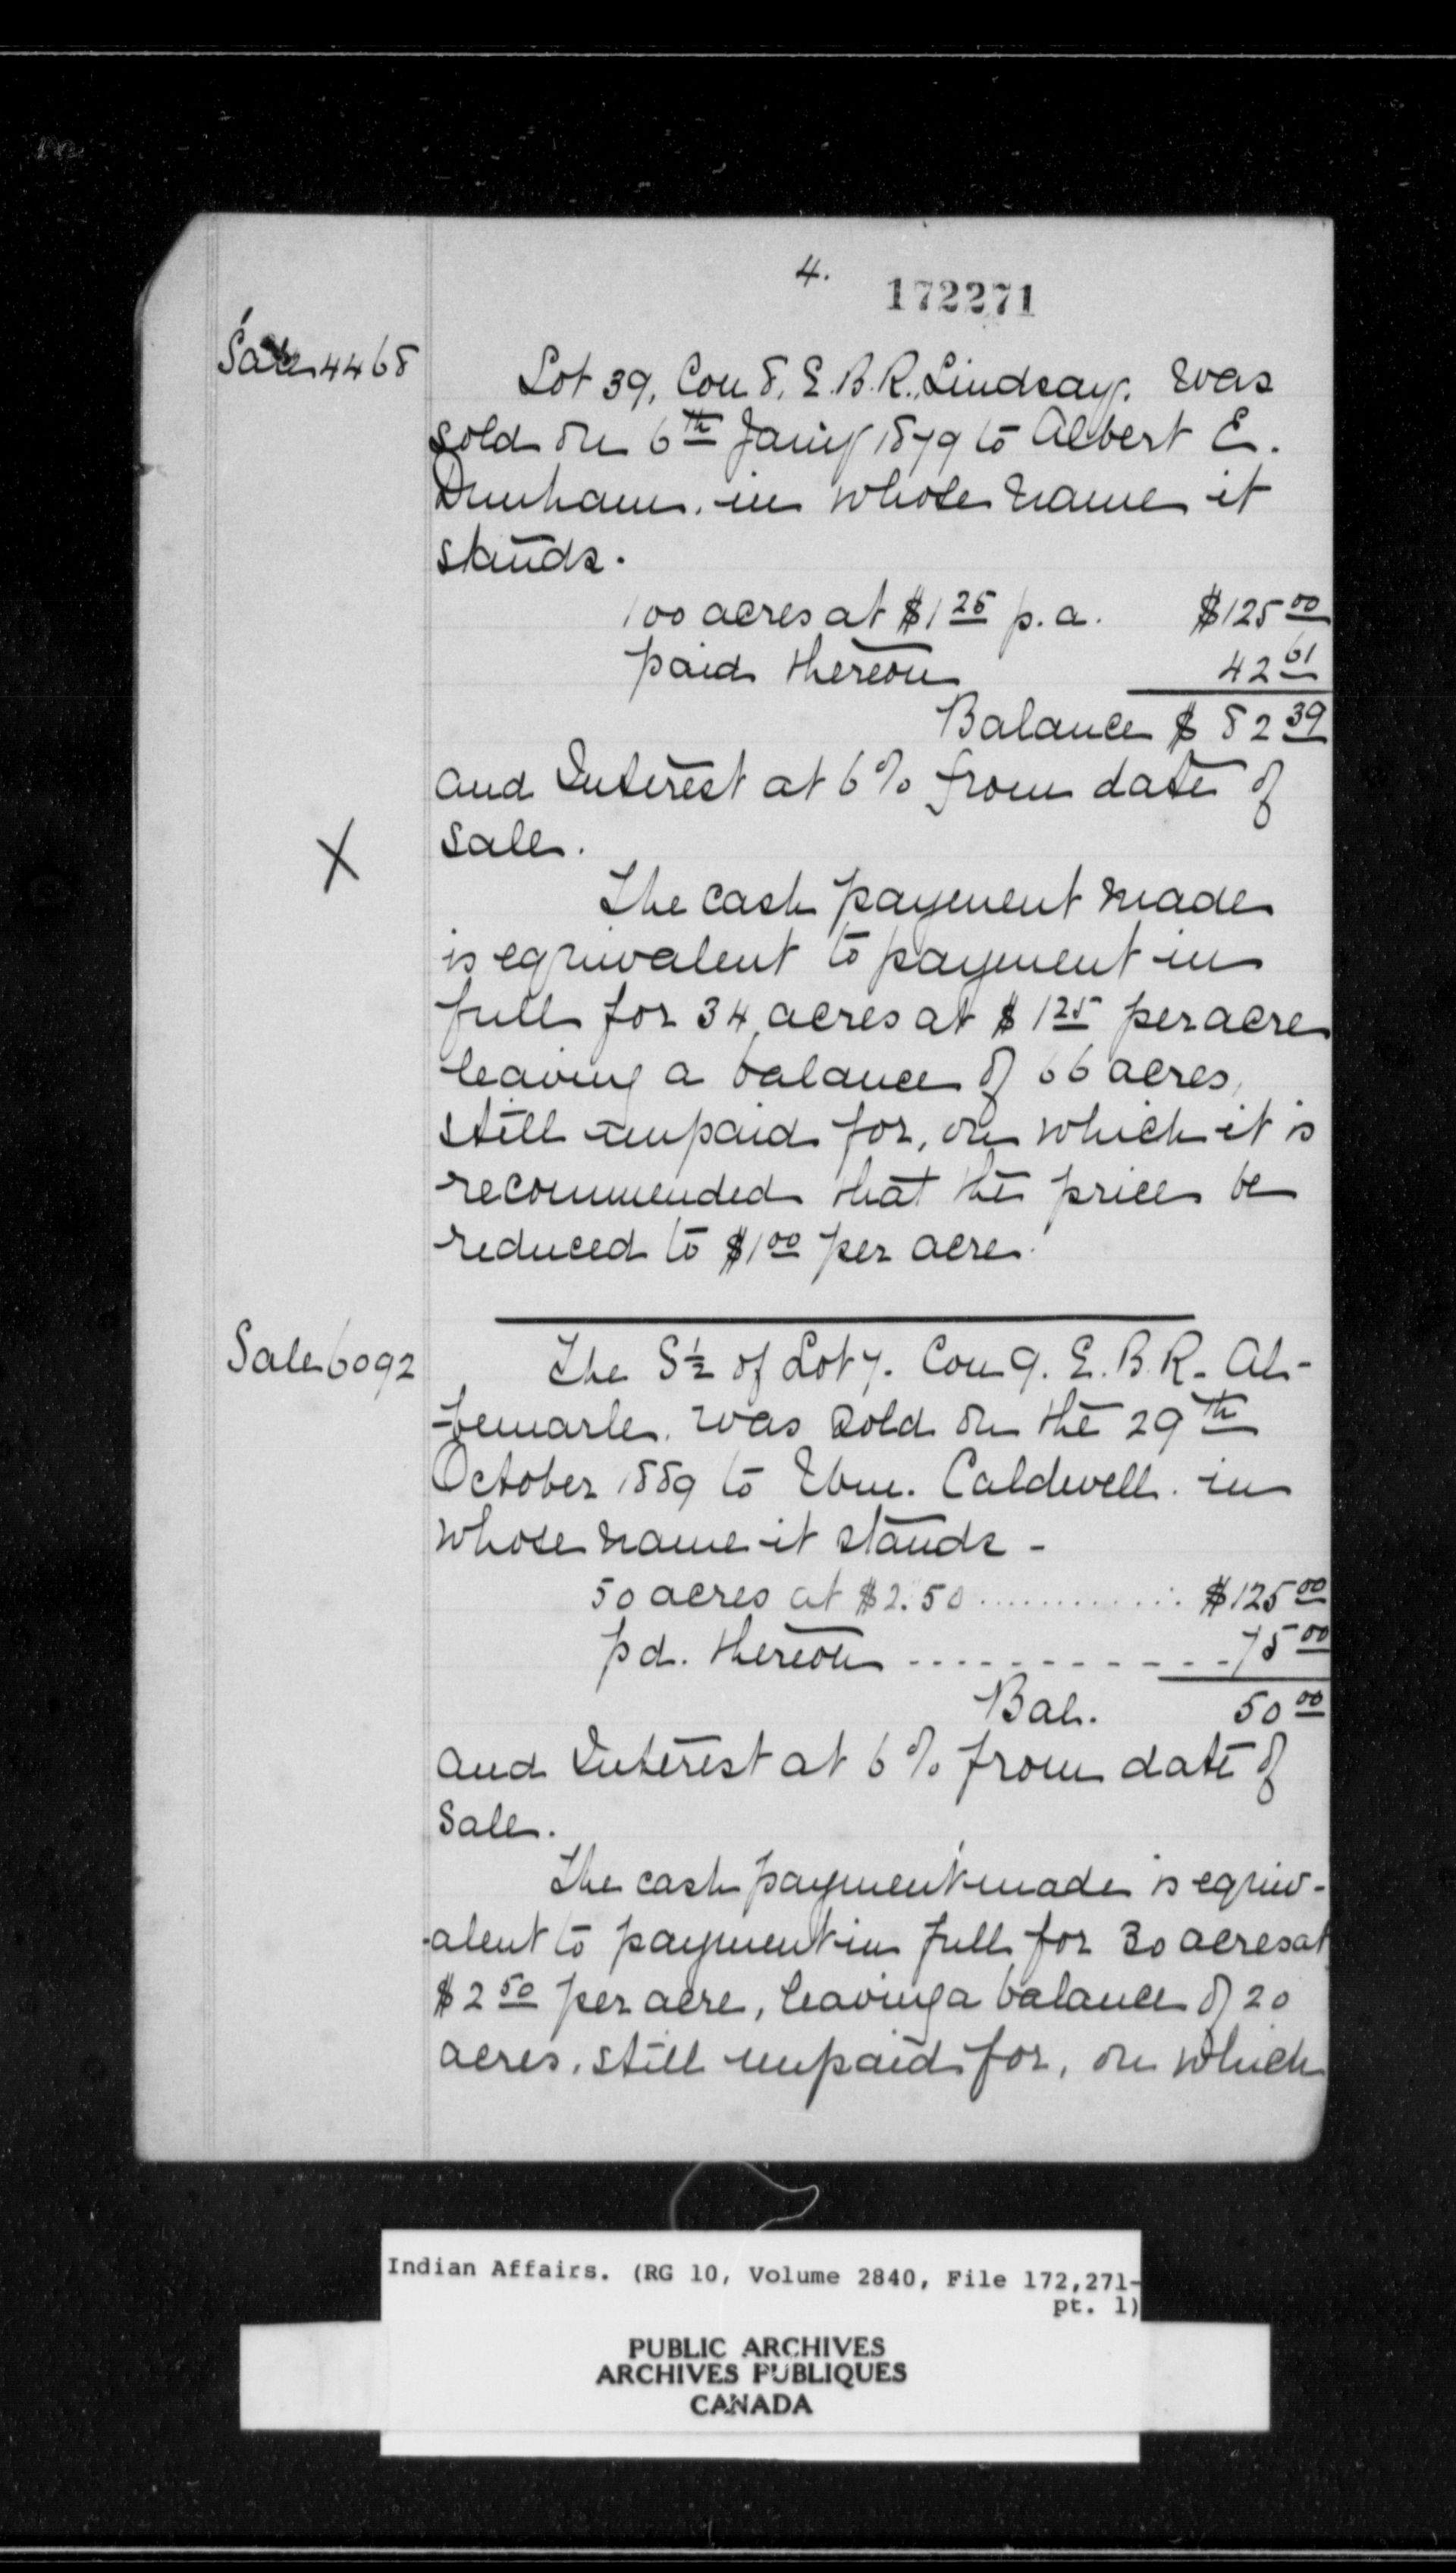 4.
172271
Sale 4468
Lot 39, Con 8, E.B.R., Lindsay. was
sold on 6th Jany 1879 to Albert E.
Dunham. in whose name it
stands.
100 acres at $1 25 p.a. $125 00
paid thereon 42 61
Balance $ 82 39
and Interest at 6% from date of
sale.
X
The cash payment made
is equivalent to payment in
full for 34 acres at $ 1 25 per acre
leaving a balance of 66 acres,
still unpaid for, on which it is
recommended that the price be
reduced to $1 00 per acre.
Sale 6092
The S½ of Lot 7. Con 9. E.B.R. Al-
-bemarle. was sold on the 29th
October 1889 to Ebn. Caldwell. in
whose name it stands -
50 acres at $2.50 ............ $125 00
pd. thereon ............ 75 00
Bal. 50 00
and Interest at 6% from date of
Sale.
The cash payment made is equiv-
-alent to payment in full for 30 acres at
$2 50 per acre, leaving a balance of 20
acres, still unpaid for, on which
Indian Affairs. (RG 10, Volume 2840, File 172,271-
pt. 1)
PUBLIC ARCHIVES
ARCHIVES PUBLIQUES
CANADA